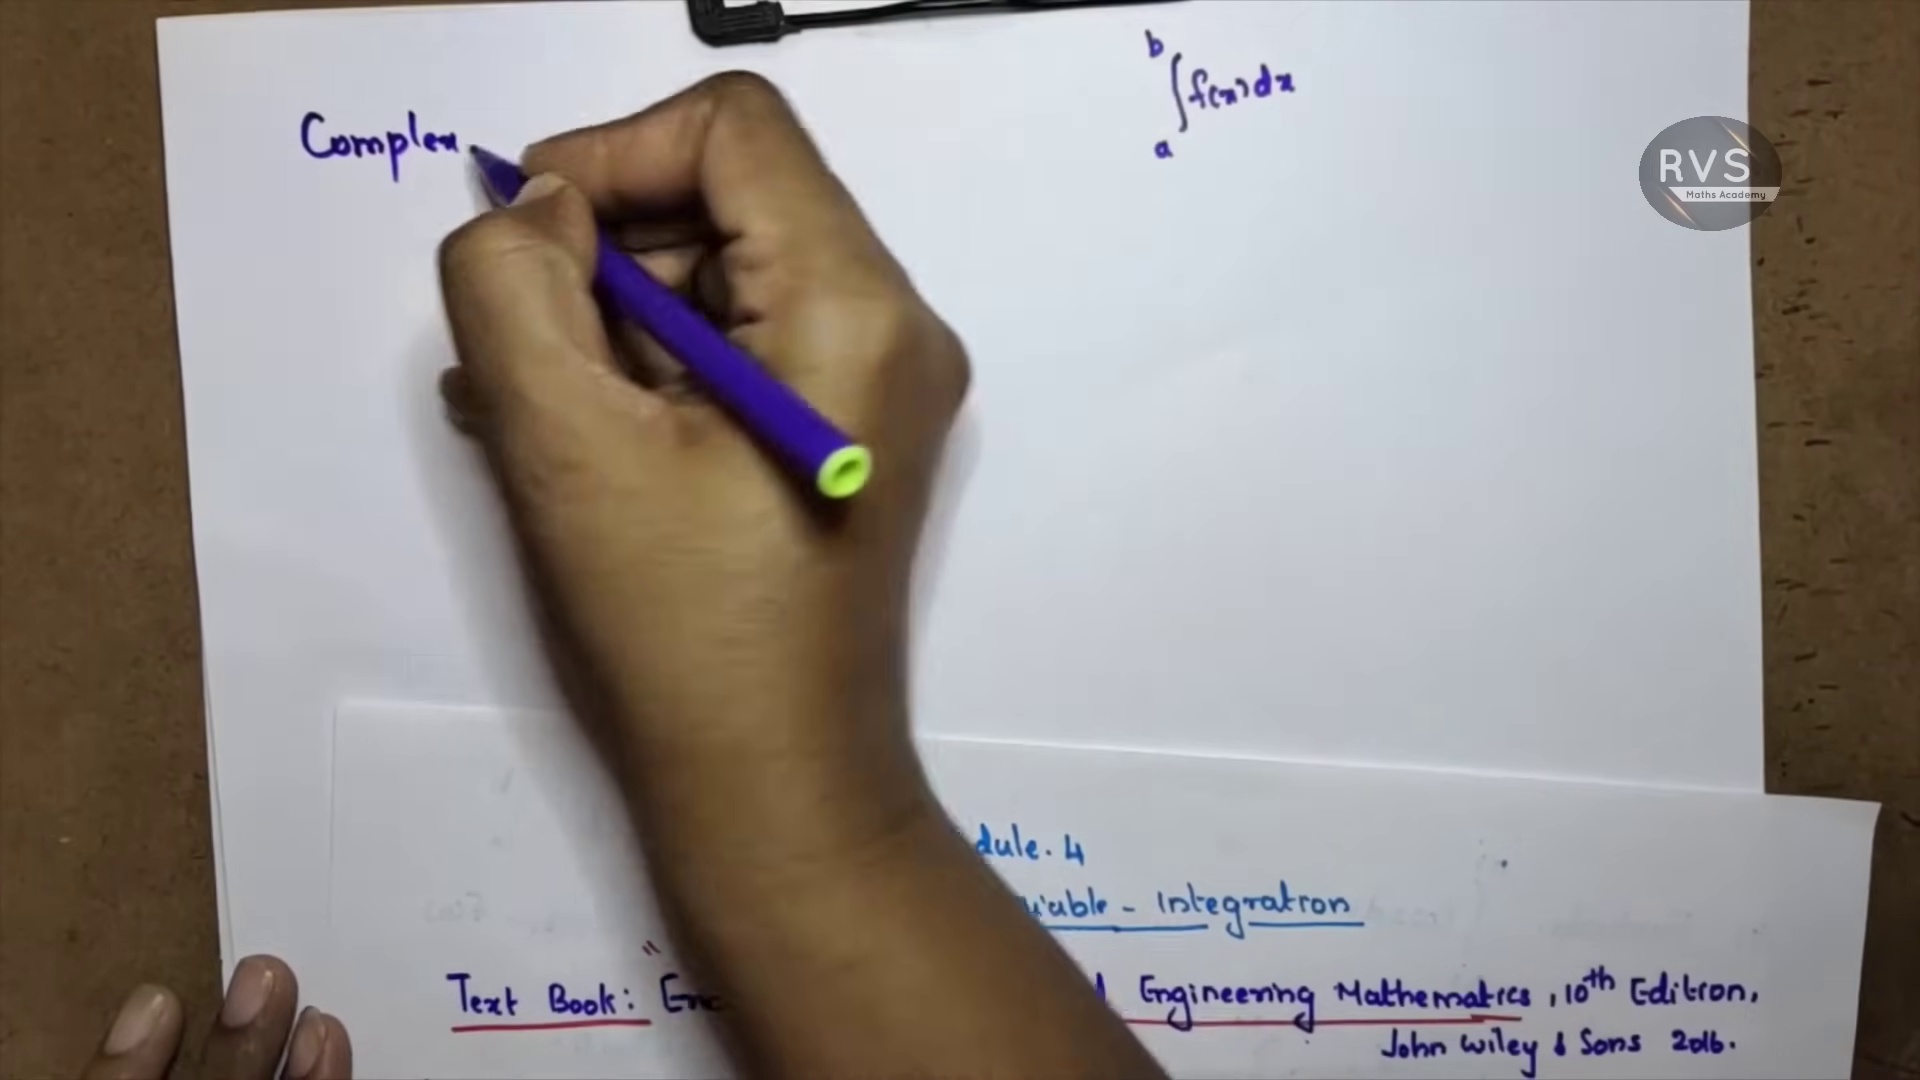 b
∫f(x)dx
a
Complex
RVS
Maths Academy
dule. 4
iable - Integration
"
Text Book: Engineering Mathematics, 10th Edition,
John Wiley & Sons 2016.